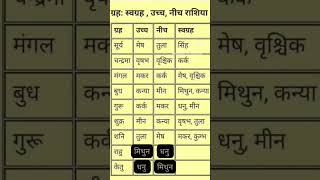 ग्रह: स्वग्रह , उच्च, नीच राशिया
ग्रह उच्च नीच स्वग्रह
सूर्य मेष तुला सिंह
चन्द्रमा वृषभ वृश्चिक कर्क
मंगल मकर कर्क मेष, वृश्चिक
बुध कन्या मीन मिथुन, कन्या
गुरू कर्क मकर धनु, मीन
शुक्र मीन कन्या वृषभ, तुला
शनि तुला मेष मकर, कुम्भ
राहु मिथुन धनु
केतु धनु मिथुन
मंगल
बुध
गुरू
मेष, वृश्चिक
मिथुन, कन्या
धनु, मीन